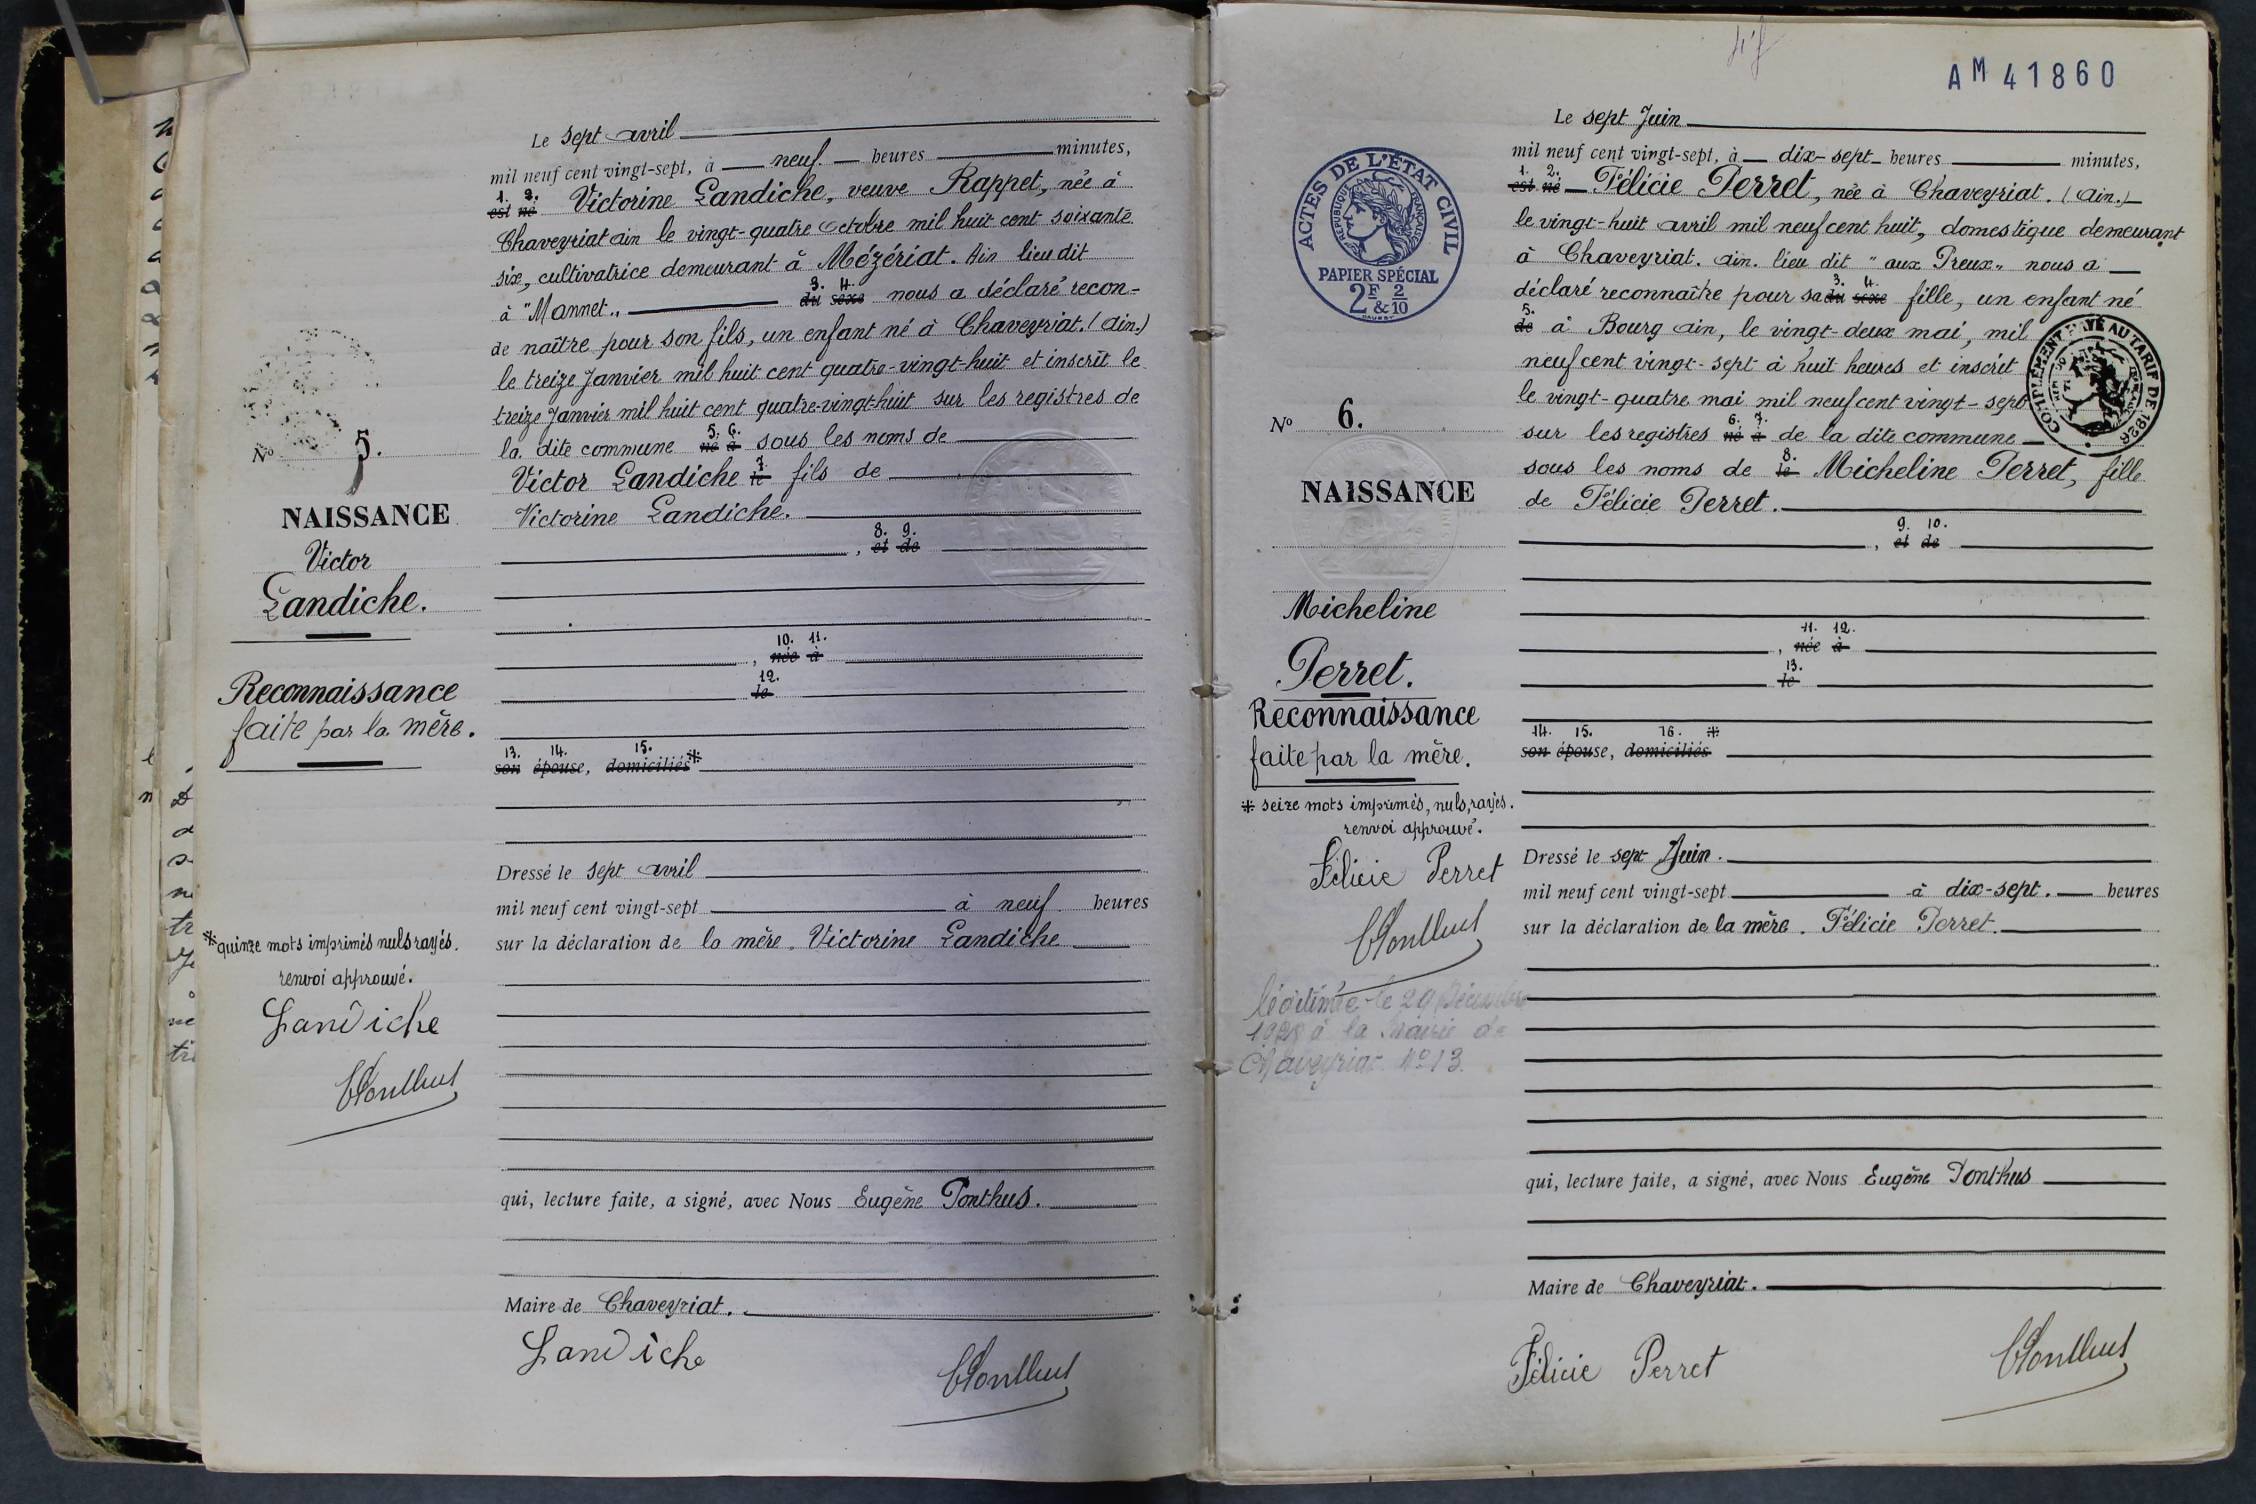 Le sept avril
mil neuf cent vingt-sept, à neuf heures minutes,
1. 2.
est né Victorine Landiche, veuve Rappet, née à
Chaveyriat ain le vingt-quatre octobre mil huit cent soixante
six, cultivatrice demeurant à Mézériat. Ain lieu dit
3. 4.
à "Mannet„ du sexe nous a déclaré recon-
de naître pour son fils, un enfant né à Chaveyriat. (Ain.)
le treize Janvier mil huit cent quatre-vingt-huit et inscrit le
treize Janvier mil huit cent quatre-vingt-huit sur les registres de
5. 6.
la dite commune né à sous les noms de
7
Victor Landiche le fils de
Victorine Landiche.
8. 9.
, et de
10. 11.
, née à
12.
le
13. 14. 15.
son épouse, domiciliés*
Dressé le sept avril
mil neuf cent vingt-sept à neuf heures
sur la déclaration de la mère. Victorine Landiche
qui, lecture faite, a signé, avec Nous Eugène Ponthus.
Maire de Chaveyriat.
Landiche
EPonthus
No 5.
NAISSANCE
Victor
Landiche.
Reconnaissance
faite par la mère.
* quinze mots imprimés nuls rayés.
renvoi approuvé.
Landiche
EPonthus
AM 41860
ACTES DE L'ÉTAT CIVIL
RÉPUBLIQUE FRANÇAISE
PAPIER SPÉCIAL
2F & 2/10
Le sept Juin
mil neuf cent vingt-sept, à dix-sept heures minutes,
1. 2.
est né Félicie Perret, née à Chaveyriat. (Ain.)
le vingt-huit avril mil neuf cent huit, domestique demeurant
à Chaveyriat. ain. lieu dit "aux Preux„ nous a
3. 4.
déclaré reconnaître pour sa du sexe fille, un enfant né
5.
de à Bourg ain, le vingt-deux mai, mil
neuf cent vingt-sept à huit heures et inscrit
le vingt-quatre mai mil neuf cent vingt-sept
6. 7.
sur les registres né à de la dite commune
8.
sous les noms de le Micheline Perret, fille
de Félicie Perret.
COMPLÉMENT PAYÉ AU TARIF DE 1926
9. 10.
, et de
11. 12.
, née à
13.
le
14. 15. 16. *
son épouse, domiciliés
Dressé le sept Juin.
mil neuf cent vingt-sept à dix-sept. heures
sur la déclaration de la mère. Félicie Perret.
qui, lecture faite, a signé, avec Nous Eugène Ponthus
Maire de Chaveyriat.
Félicie Perret
EPonthus
No 6.
NAISSANCE
Micheline
Perret.
Reconnaissance
faite par la mère.
* seize mots imprimés, nuls, rayés.
renvoi approuvé.
Félicie Perret
EPonthus
légitimée le 29 Décembre
1928 à la Mairie de
Chaveyriat No 13.